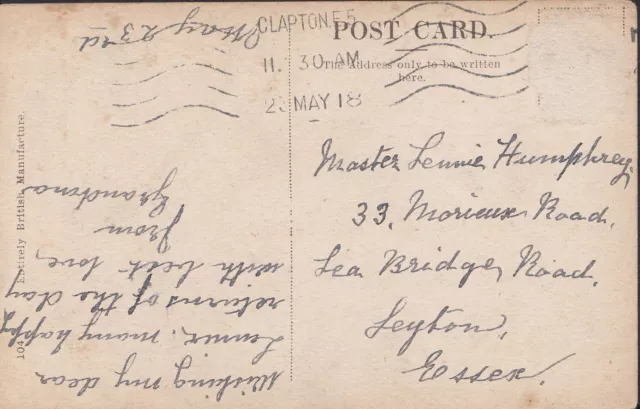 CLAPTON E5
11. 30 AM
23 MAY 18
POST CARD.
The Address only to be written
here.
Master Lennie Humphrey,
33, Morieux Road,
Lea Bridge, Road.
Leyton,
Essex.
May 23rd
Wishing my dear
Lennie, many happy
returns of the day
with best love,
from
Grandma
104
Entirely British Manufacture.